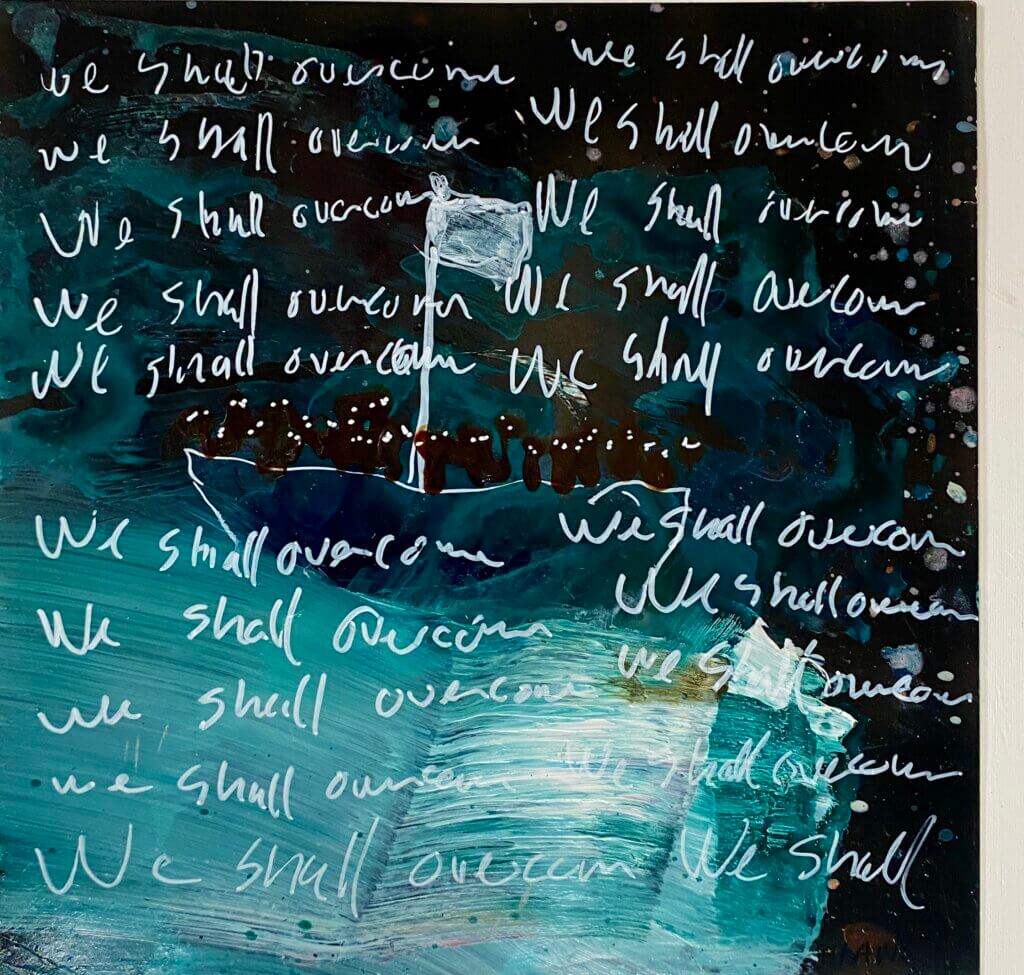 we shall overcome we shall overcome
we shall overcome We shall overcome
We shall overcome We shall overcome
We shall overcome We shall overcome
We shall overcome We shall overcome
We shall overcome We shall overcome
We shall overcome We shall overcome
we shall overcome we shall overcome
we shall overcome We shall overcome
We shall overcome We shall